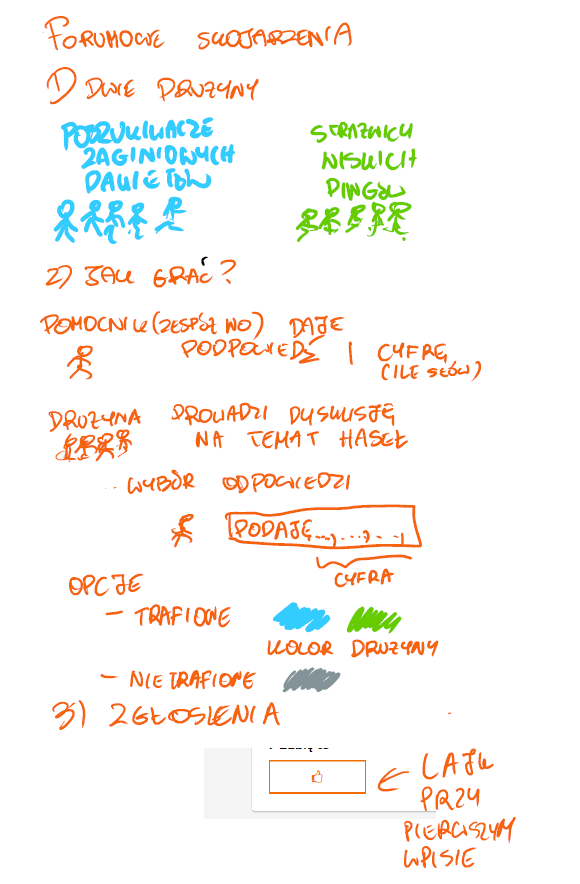 FORUMOWE SKOJARZENIA
1) DWIE DRUŻYNY
POSZUKIWACZE
ZAGINIONYCH
PAKIETÓW
STRAŻNICY
NISKICH
PINGÓW
2) JAK GRAĆ?
POMOCNIK (ZESPÓŁ WO) DAJE
PODPOWIEDŹ I CYFRĘ
(ILE SŁÓW)
DRUŻYNA PROWADZI DYSKUSJĘ
NA TEMAT HASEŁ
WYBÓR ODPOWIEDZI
PODAJĘ ..., ..., ...
CYFRA
OPCJE
- TRAFIONE
KOLOR DRUŻYNY
- NIETRAFIONE
3) ZGŁOSZENIA
LAJK
PRZY
PIERWSZYM
WPISIE